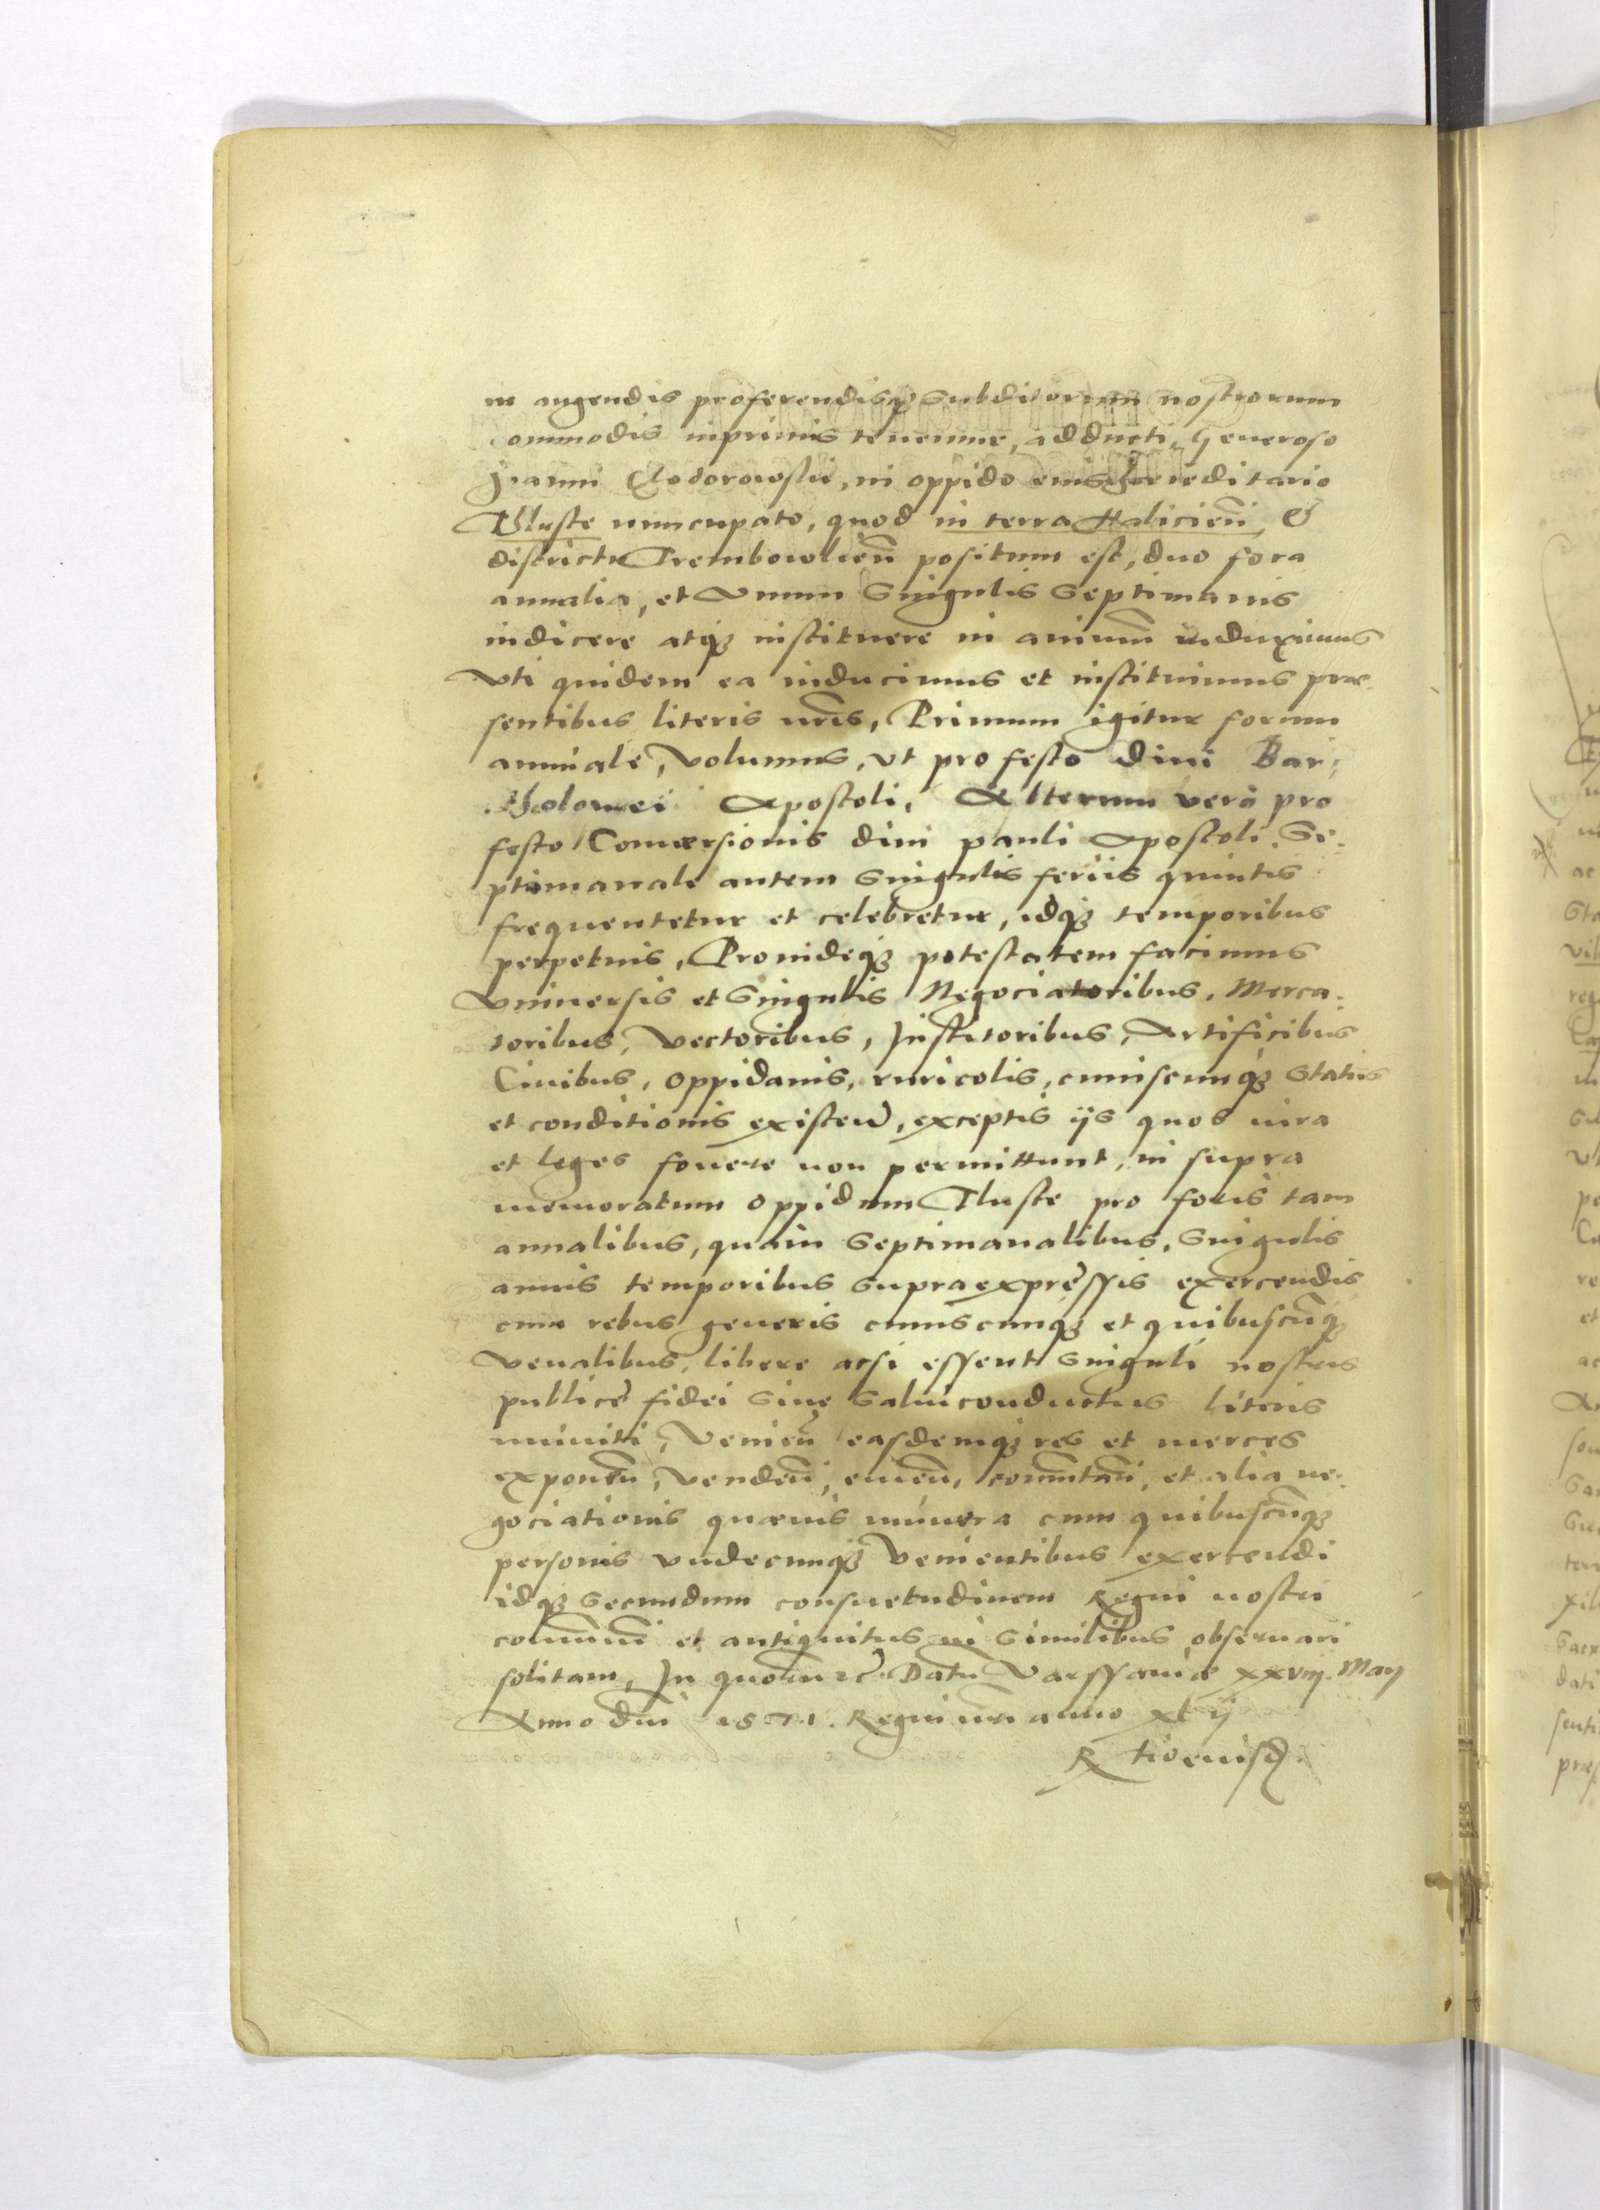 in augendis proferendisq3 subditorum nostrorum
commodis inprimis tenemur, adducti, Generoso
Joanni Chodorowski, in oppido eius haereditario
Tluste nuncupato, quod in terra Halicien̄ &
districtu Trembowlien̄ positum est, duo fora
annalia, et Vnum Singulis Septimanis
indicere atq3 instituere in animū induximus
Vti quidem ea inducimus et instituimus præ-
sentibus literis nr̄is, Primum igitur forum
annuale, Volumus, vt pro festo diui Bar-
tholomei Apostoli, Alterum verò pro
festo Conuersionis diui Pauli Apostoli. Se-
ptimanale autem Singulis feriis quintis
frequentetur et celebretur, idq3 temporibus
perpetuis, Prouideq3 potestatem facimus
Vniuersis et Singulis Negociatoribus, Merca-
toribus, Vectoribus, Institoribus, Artificibus
Ciuibus, Oppidanis, ruricolis, cuiuscunq3 Status
et conditionis existen̄, exceptis ijs quos iura
et leges fouere non permittunt, in supra
memoratum oppidum Tluste pro foris tam
annalibus, quàm Septimanalibus, Singulis
annis temporibus supraexpressis exercendis
cum rebus generis cuiuscunq3 et quibuscūq3
Venalibus, libere acsi essent Singuli nostris
publicè fidei Siue Saluiconductus literis
muniti, Venien̄ easdemq3 res et merces
exponen̄, Venden̄, emen̄, com̄utan̄, et alia ne-
gociationis quæuis munera cum quibuscūq3
personis vndecunq3 Venientibus exercendi
idq3 Secundum consuetudinem Regni nostri
com̄unē et antiquitus in Similibus obseruari
solitam, In quorum rē Datū Varssauiæ xxviij. Maij
Anno dn̄i 1571. Regni nr̄i anno xlij
R tio eiusd